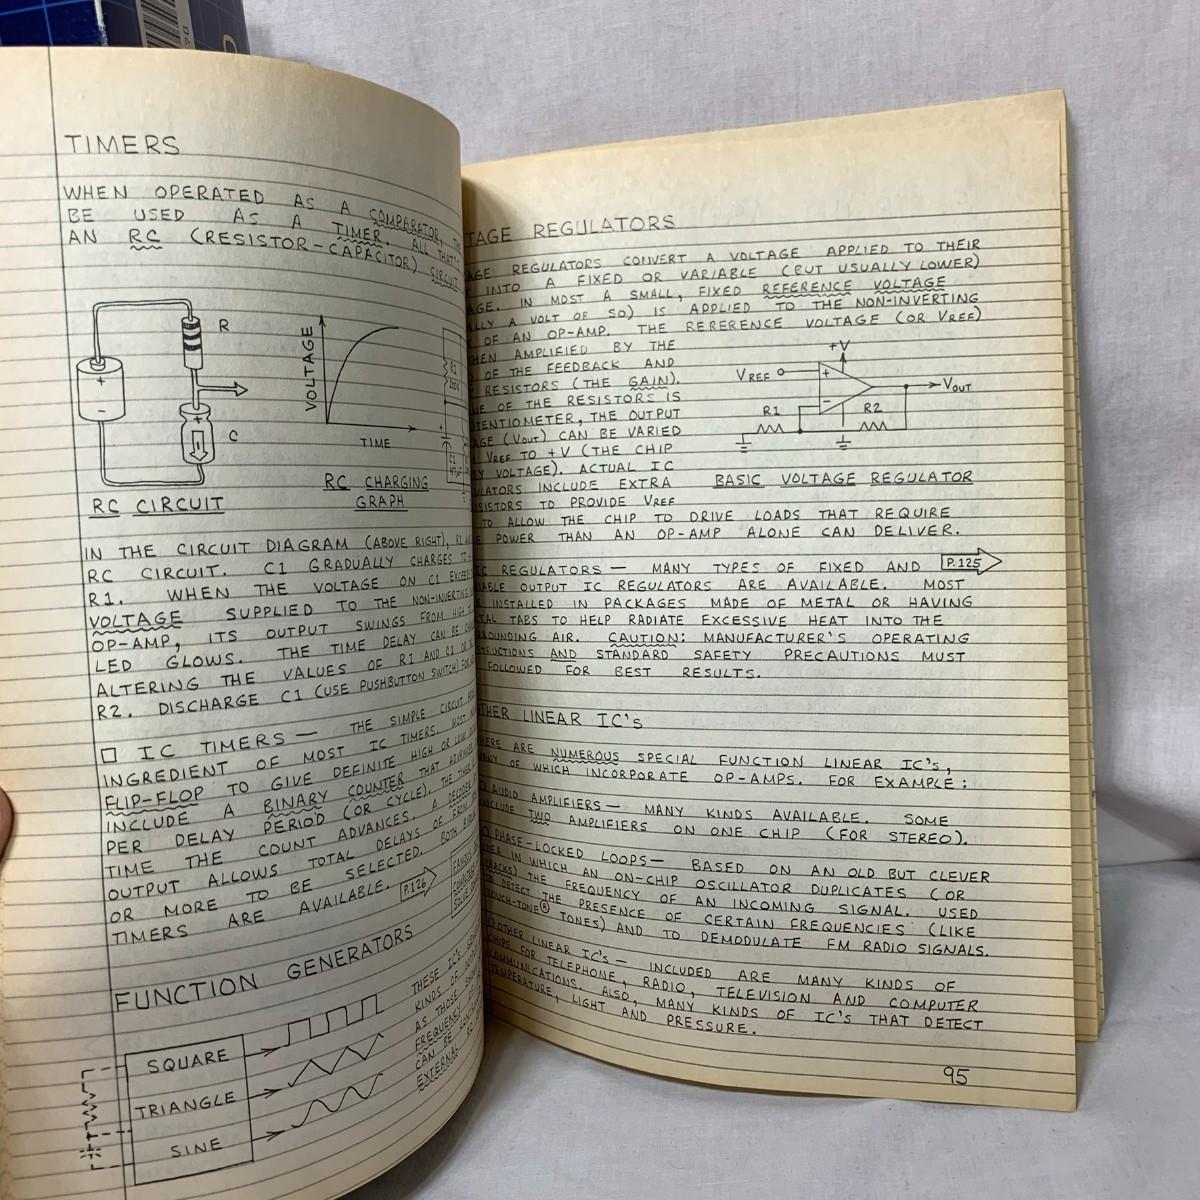 TIMERS
WHEN OPERATED AS A COMPARATOR,
BE USED AS A TIMER. ALL THAT'S
AN RC (RESISTOR-CAPACITOR) CIRCUIT
R
C
VOLTAGE
TIME
R1
RC CIRCUIT
RC CHARGING
GRAPH
IN THE CIRCUIT DIAGRAM (ABOVE RIGHT), R1
RC CIRCUIT. C1 GRADUALLY CHARGES
R1. WHEN THE VOLTAGE ON C1 EXCEEDS
VOLTAGE SUPPLIED TO THE NON-INVERTING
OP-AMP, ITS OUTPUT SWINGS FROM HIGH
LED GLOWS. THE TIME DELAY CAN BE
ALTERING THE VALUES OF R1 AND
R2. DISCHARGE C1 (USE PUSHBUTTON SWITCH)
□ IC TIMERS — THE SIMPLE CIRCUIT
INGREDIENT OF MOST IC TIMERS. MOST
FLIP-FLOP TO GIVE DEFINITE HIGH OR LOW
INCLUDE A BINARY COUNTER THAT ADVANCES
PER DELAY PERIOD (OR CYCLE).
TIME THE COUNT ADVANCES. A DECODER
OUTPUT ALLOWS TOTAL DELAYS OF FROM
OR MORE TO BE SELECTED. BOTH
TIMERS ARE AVAILABLE. P.126
FUNCTION GENERATORS
SQUARE
TRIANGLE
SINE
THESE IC'S
KINDS OF
AS THOSE
FREQUENCY
CAN BE
EXTERNAL
TAGE REGULATORS
AGE REGULATORS CONVERT A VOLTAGE APPLIED TO THEIR
INTO A FIXED OR VARIABLE (BUT USUALLY LOWER)
AGE. IN MOST A SMALL, FIXED REFERENCE VOLTAGE
LLY A VOLT OR SO) IS APPLIED TO THE NON-INVERTING
OF AN OP-AMP. THE RERERENCE VOLTAGE (OR VREF)
HEN AMPLIFIED BY THE
OF THE FEEDBACK AND
RESISTORS (THE GAIN).
NE OF THE RESISTORS IS
TENTIOMETER, THE OUTPUT
AGE (VOUT) CAN BE VARIED
VREF TO +V (THE CHIP
Y VOLTAGE). ACTUAL IC
ULATORS INCLUDE EXTRA
SISTORS TO PROVIDE VREF
TO ALLOW THE CHIP TO DRIVE LOADS THAT REQUIRE
E POWER THAN AN OP-AMP ALONE CAN DELIVER.
+V
VREF
+
−
VOUT
R1
R2
BASIC VOLTAGE REGULATOR
IC REGULATORS — MANY TYPES OF FIXED AND P.125
IABLE OUTPUT IC REGULATORS ARE AVAILABLE. MOST
INSTALLED IN PACKAGES MADE OF METAL OR HAVING
TAL TABS TO HELP RADIATE EXCESSIVE HEAT INTO THE
ROUNDING AIR. CAUTION: MANUFACTURER'S OPERATING
STRUCTIONS AND STANDARD SAFETY PRECAUTIONS MUST
FOLLOWED FOR BEST RESULTS.
THER LINEAR IC'S
HERE ARE NUMEROUS SPECIAL FUNCTION LINEAR IC'S,
MANY OF WHICH INCORPORATE OP-AMPS. FOR EXAMPLE:
AUDIO AMPLIFIERS — MANY KINDS AVAILABLE. SOME
INCLUDE TWO AMPLIFIERS ON ONE CHIP (FOR STEREO).
PHASE-LOCKED LOOPS — BASED ON AN OLD BUT CLEVER
IDEA IN WHICH AN ON-CHIP OSCILLATOR DUPLICATES (OR
TRACKS) THE FREQUENCY OF AN INCOMING SIGNAL. USED
TO DETECT THE PRESENCE OF CERTAIN FREQUENCIES (LIKE
TOUCH-TONE® TONES) AND TO DEMODULATE FM RADIO SIGNALS.
□ OTHER LINEAR IC'S — INCLUDED ARE MANY KINDS OF
CHIPS FOR TELEPHONE, RADIO, TELEVISION AND COMPUTER
COMMUNICATIONS. ALSO, MANY KINDS OF IC'S THAT DETECT
TEMPERATURE, LIGHT AND PRESSURE.
95